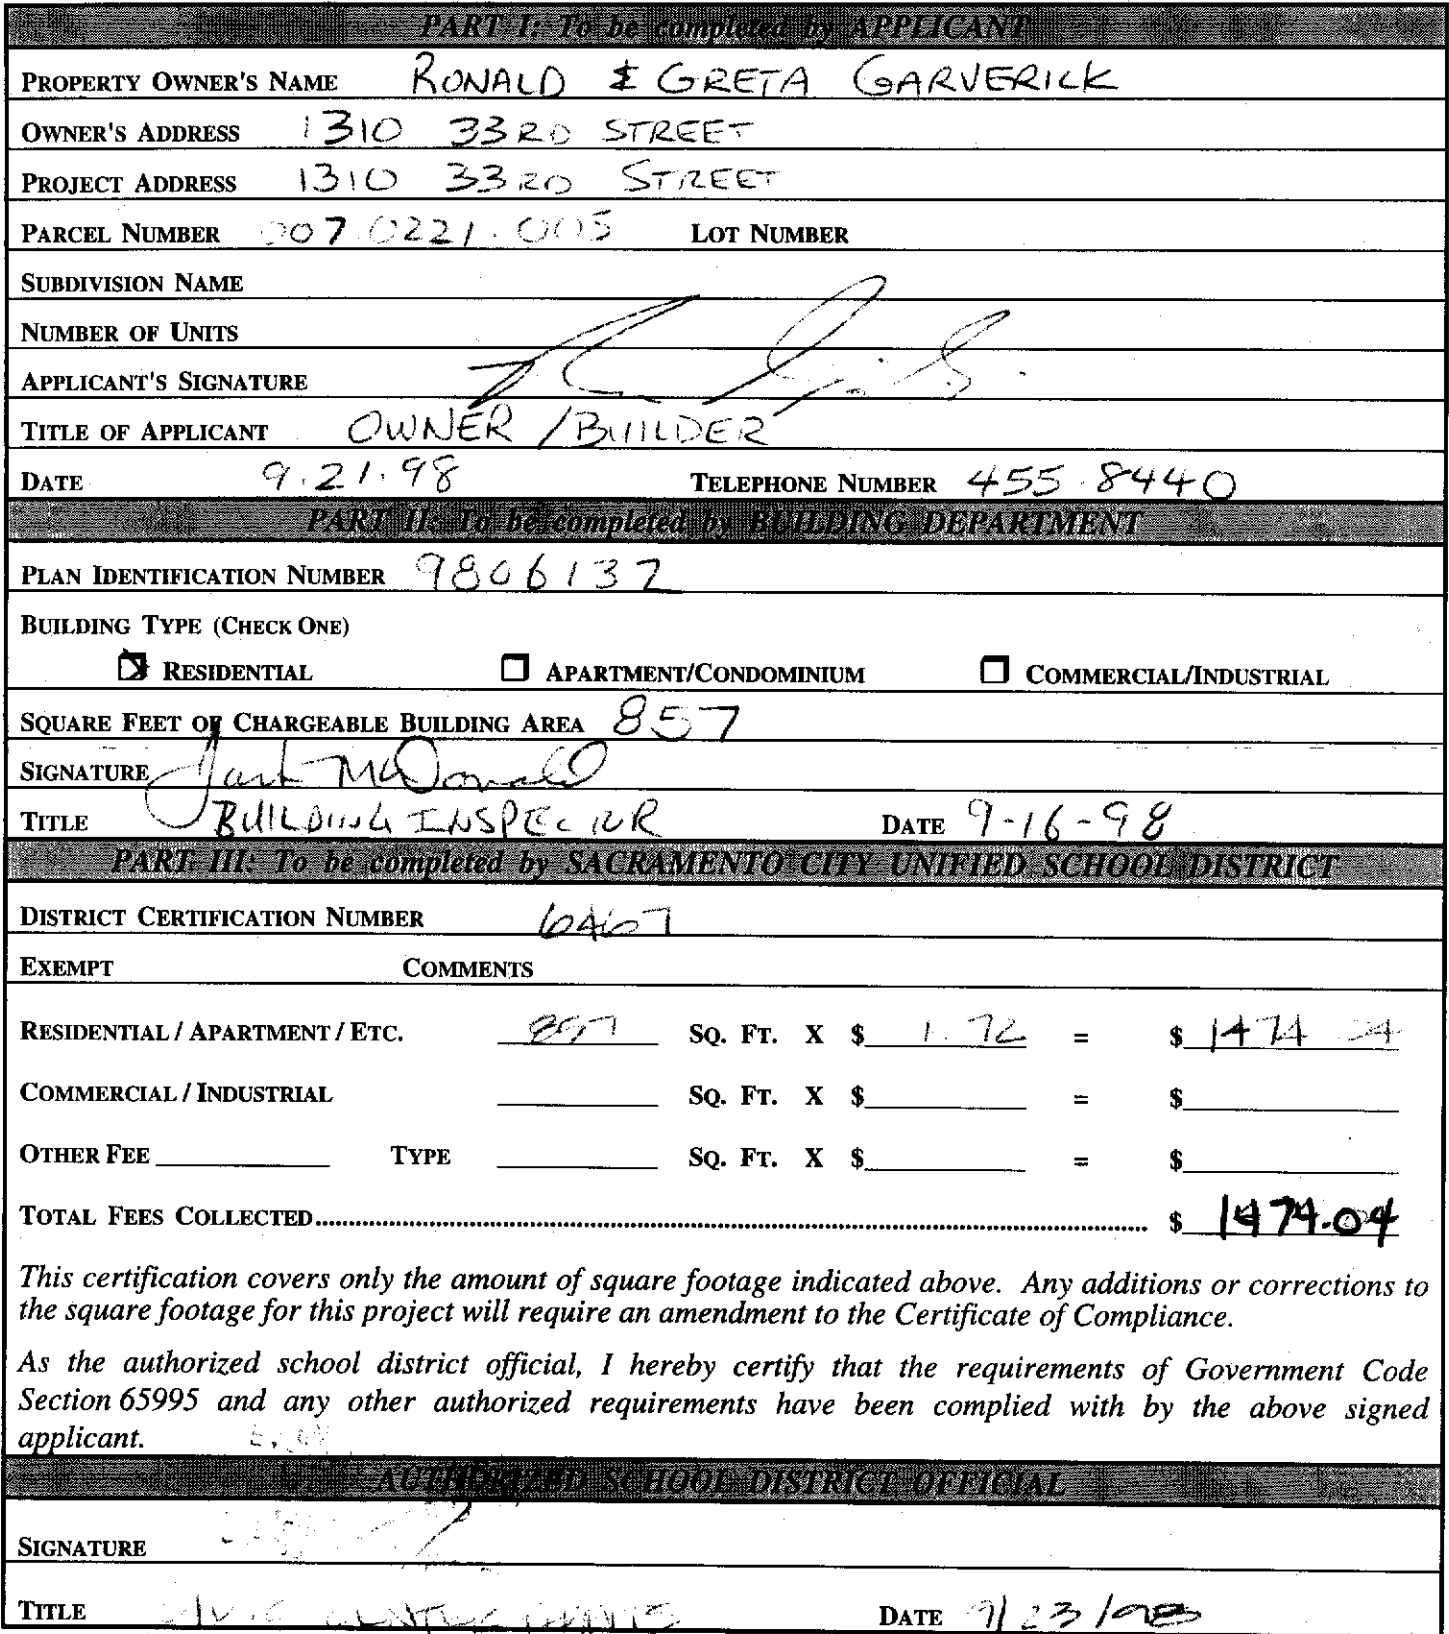 PART I: To be completed by APPLICANT
PROPERTY OWNER'S NAME RONALD & GRETA GARVERICK
OWNER'S ADDRESS 1310 33RD STREET
PROJECT ADDRESS 1310 33RD STREET
PARCEL NUMBER 007.0221.005 LOT NUMBER
SUBDIVISION NAME
NUMBER OF UNITS
APPLICANT'S SIGNATURE
TITLE OF APPLICANT OWNER / BUILDER
DATE 9.21.98 TELEPHONE NUMBER 455.8440
PART II: To be completed by BUILDING DEPARTMENT
PLAN IDENTIFICATION NUMBER 9806137
BUILDING TYPE (CHECK ONE)
RESIDENTIAL APARTMENT/CONDOMINIUM COMMERCIAL/INDUSTRIAL
SQUARE FEET OF CHARGEABLE BUILDING AREA 857
SIGNATURE McDonald
TITLE BUILDING INSPECTOR DATE 9-16-98
PART III: To be completed by SACRAMENTO CITY UNIFIED SCHOOL DISTRICT
DISTRICT CERTIFICATION NUMBER 6467
EXEMPT COMMENTS
RESIDENTIAL / APARTMENT / ETC. 857 SQ. FT. X $ 1.72 = $ 1474
COMMERCIAL / INDUSTRIAL SQ. FT. X $ = $
OTHER FEE TYPE SQ. FT. X $ = $
TOTAL FEES COLLECTED........ $ 1474.04
This certification covers only the amount of square footage indicated above. Any additions or corrections to
the square footage for this project will require an amendment to the Certificate of Compliance.
As the authorized school district official, I hereby certify that the requirements of Government Code
Section 65995 and any other authorized requirements have been complied with by the above signed
applicant.
AUTHORIZED SCHOOL DISTRICT OFFICIAL
SIGNATURE
TITLE DATE 9/23/98